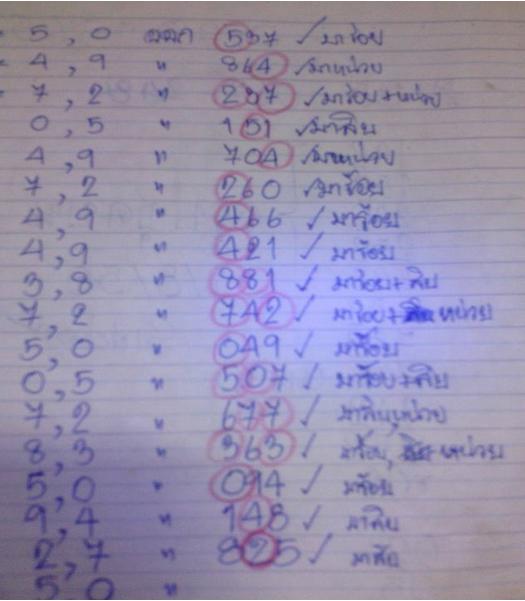 = 5, 0 ออก 537 ✓ มาร้อย
= 4, 9 " 864 ✓ มาหน่วย
= 7, 2 " 237 ✓ มาร้อย+หน่วย
0, 5 " 151 ✓ มาสิบ
4, 9 " 704 ✓ มาหน่วย
7, 2 " 260 ✓ มาร้อย
4, 9 " 466 ✓ มาร้อย
4, 9 " 421 ✓ มาร้อย
3, 8 " 881 ✓ มาร้อย+สิบ
7, 2 " 742 ✓ มาร้อย+ หน่วย
5, 0 " 049 ✓ มาร้อย
0, 5 " 507 ✓ มาร้อย+สิบ
7, 2 " 677 ✓ มาสิบ,หน่วย
8, 3 " 363 ✓ มาร้อย, + หน่วย
5, 0 " 094 ✓ มาร้อย
9, 4 " 148 ✓ มาสิบ
2, 7 " 825 ✓ มาสิบ
5, 0 "